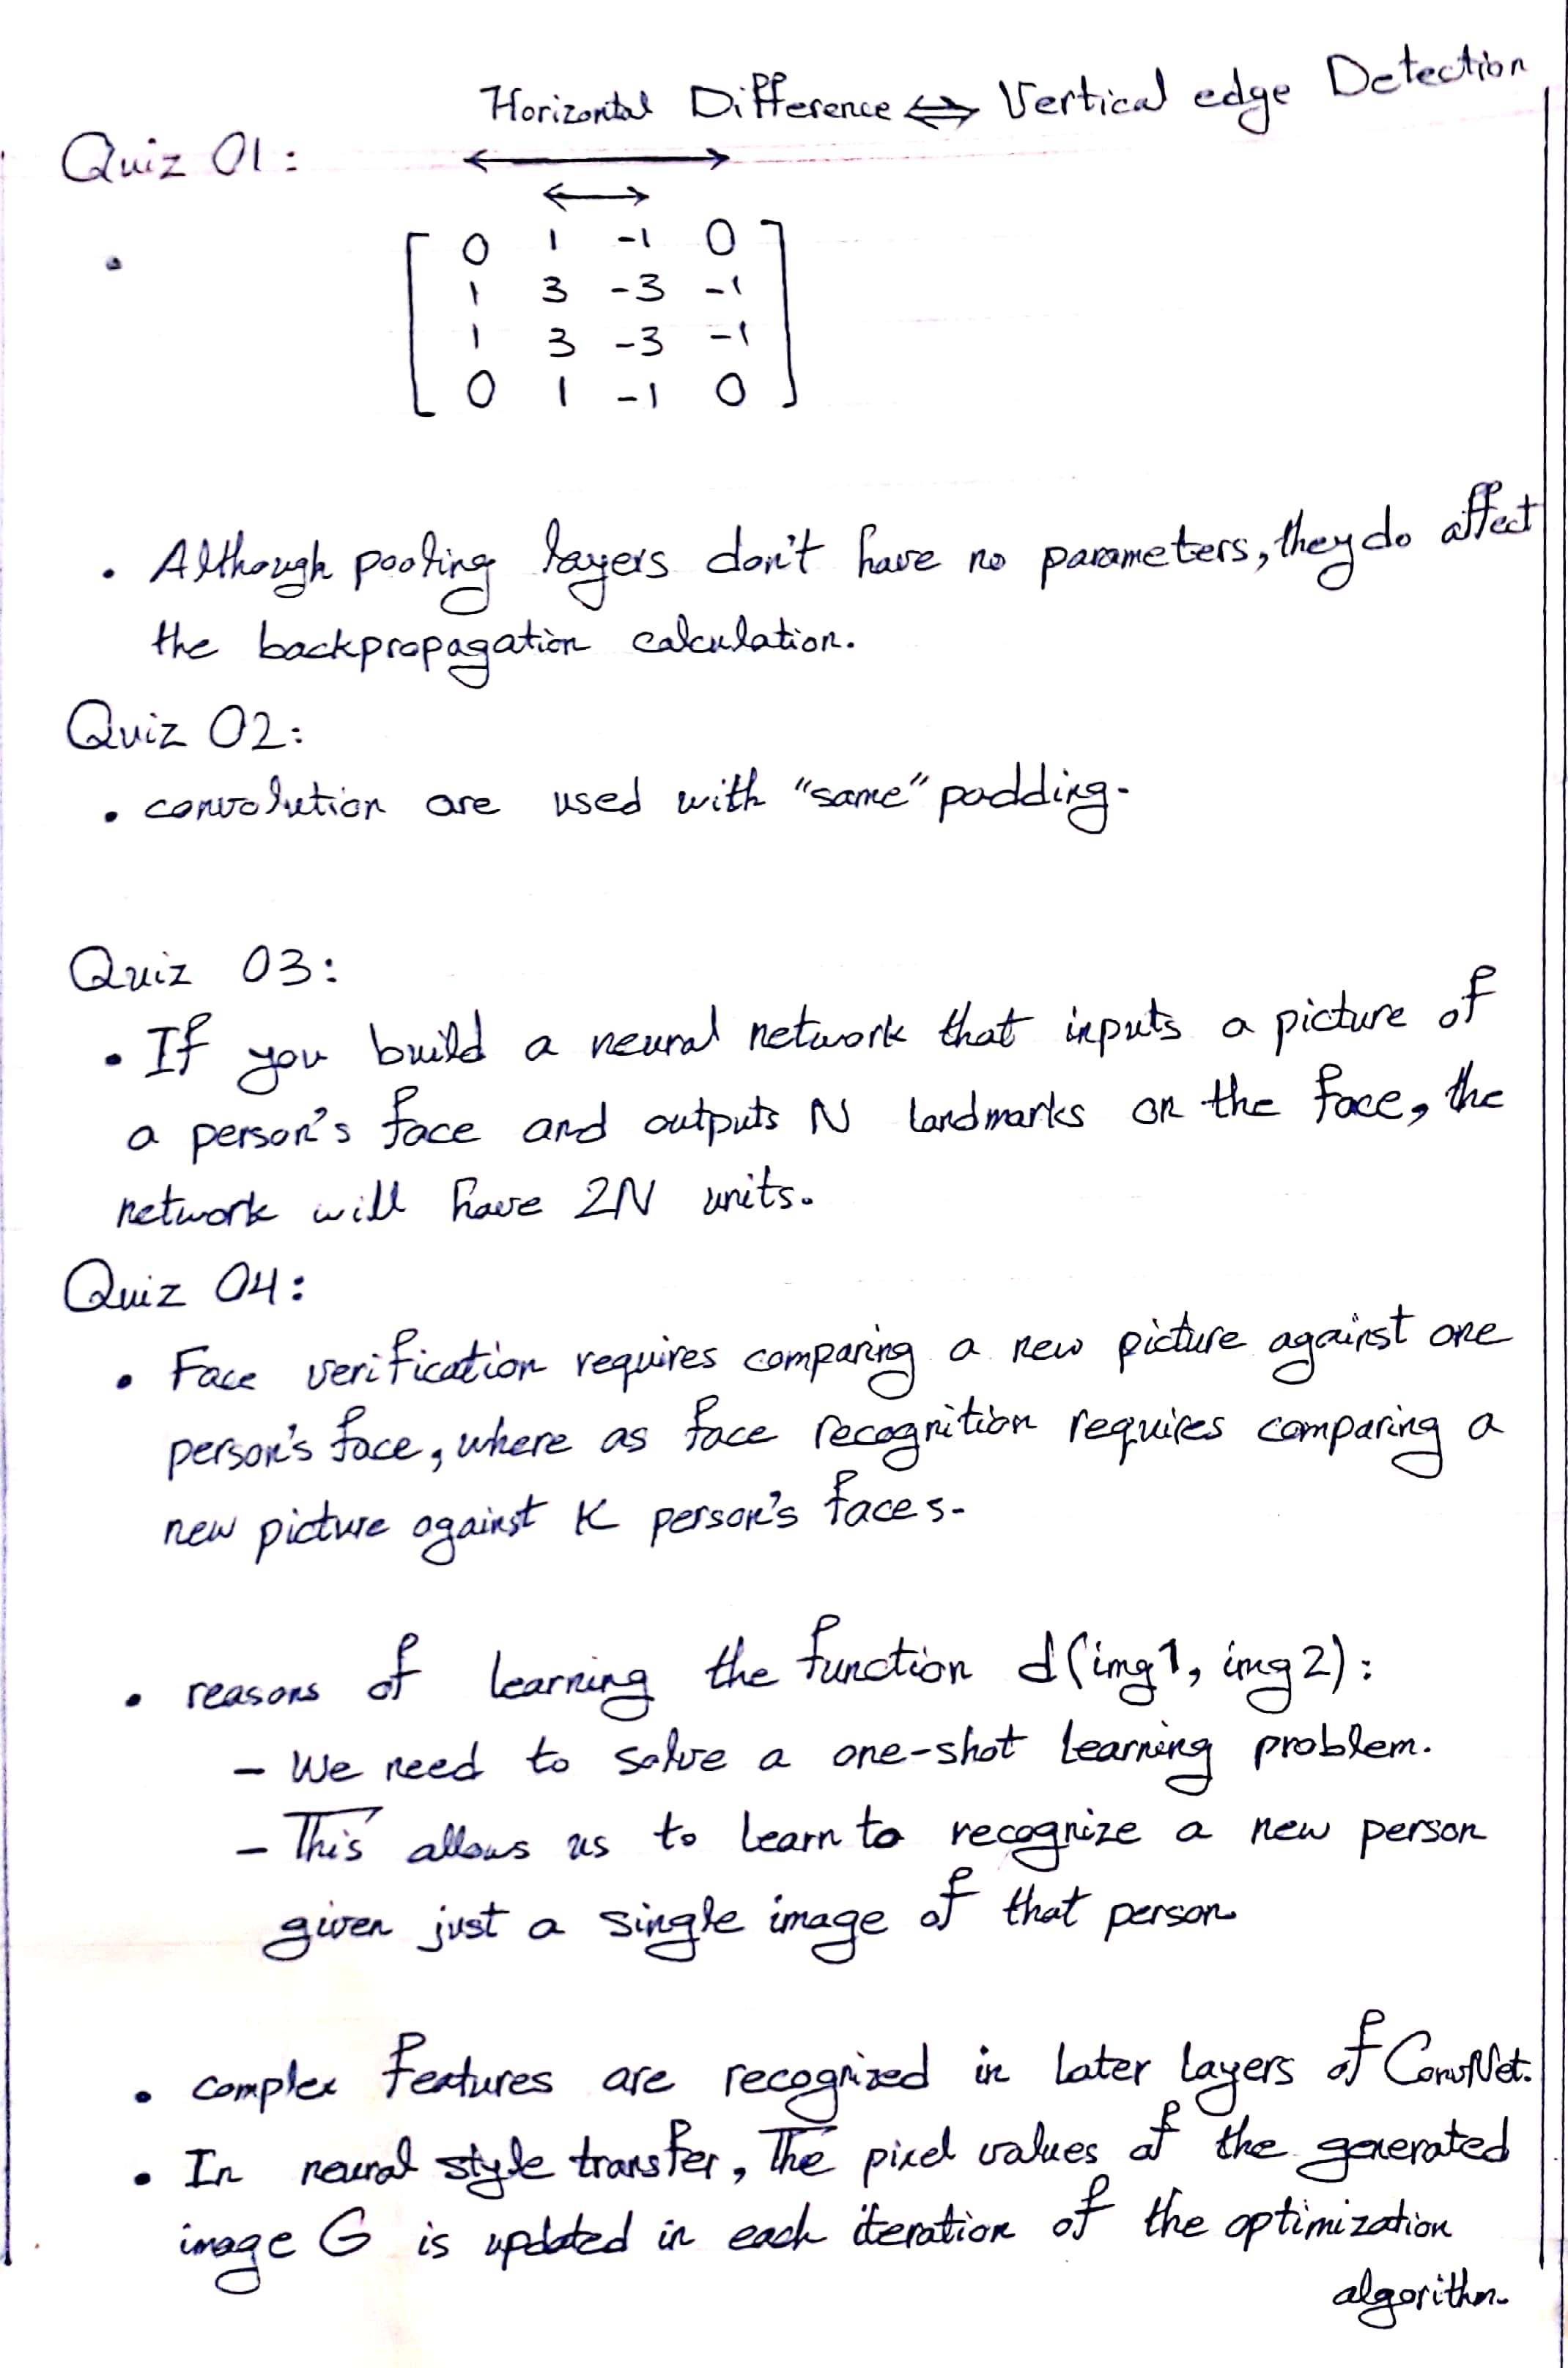 Horizontal Difference ⟺ Vertical edge Detection
Quiz 01:
0 1 -1 0
1 3 -3 -1
1 3 -3 -1
0 1 -1 0
• Although pooling layers don't have no parameters, they do affect
the backpropagation calculation.
Quiz 02:
• convolution are used with "same" padding.
Quiz 03:
• If you build a neural network that inputs a picture of
a person's face and outputs N landmarks on the face, the
network will have 2N units.
Quiz 04:
• Face verification requires comparing a new picture against one
person's face, where as face recognition requires comparing a
new picture against K person's faces.
• reasons of learning the function d(img1, img2):
- We need to solve a one-shot learning problem.
- This allows us to learn to recognize a new person
given just a single image of that person
• complex features are recognized in later layers of ConvNet.
• In neural style transfer, The pixel values of the generated
image G is updated in each iteration of the optimization
algorithm.